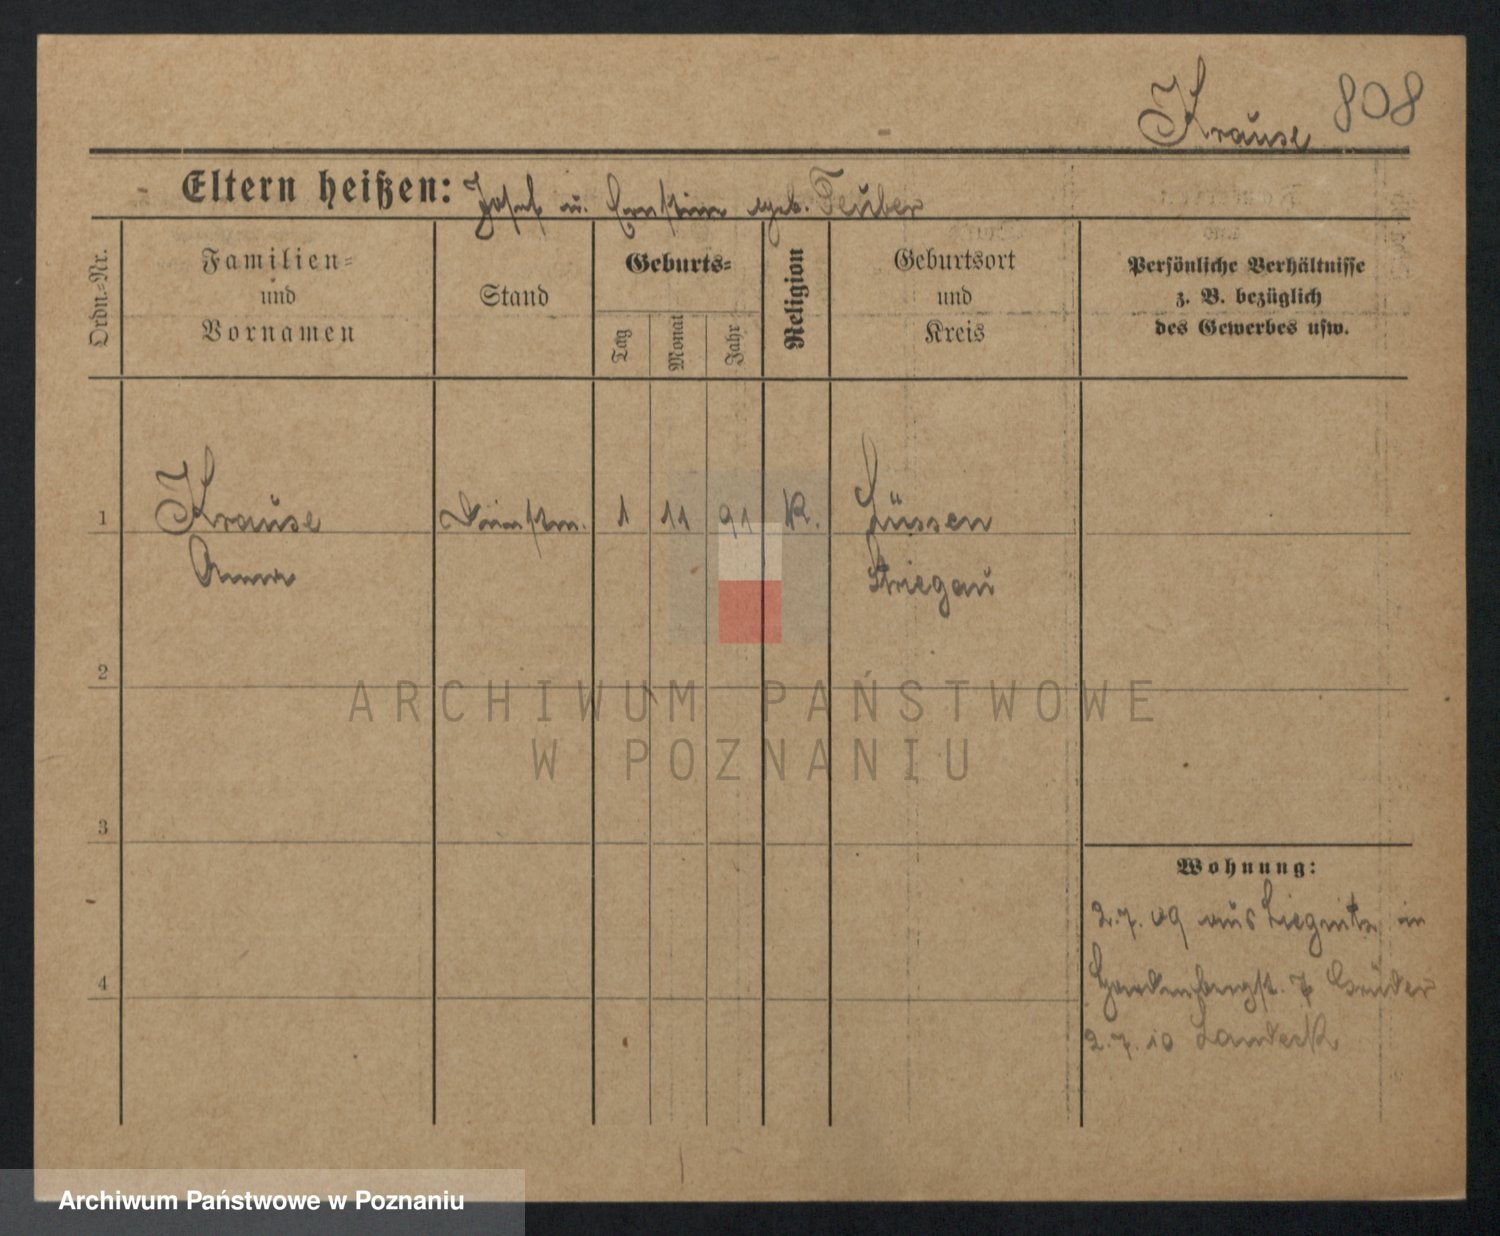 Krause 808
Eltern heißen: Josef u. Ernstine geb. Teuber
Ordn.-Nr.
Familien-
und
Vornamen
Stand
Geburts-
Tag
Monat
Jahr
Religion
Geburtsort
und
Kreis
Persönliche Verhältnisse
z. B. bezüglich
des Gewerbes usw.
1 Krause 1 11 91 K.
Anna Striegau
2
3
4
Wohnung:
2.7.09 aus Liegnitz in
7
2.7.10 Landeck
ARCHIWUM PAŃSTWOWE
W POZNANIU
Archiwum Państwowe w Poznaniu